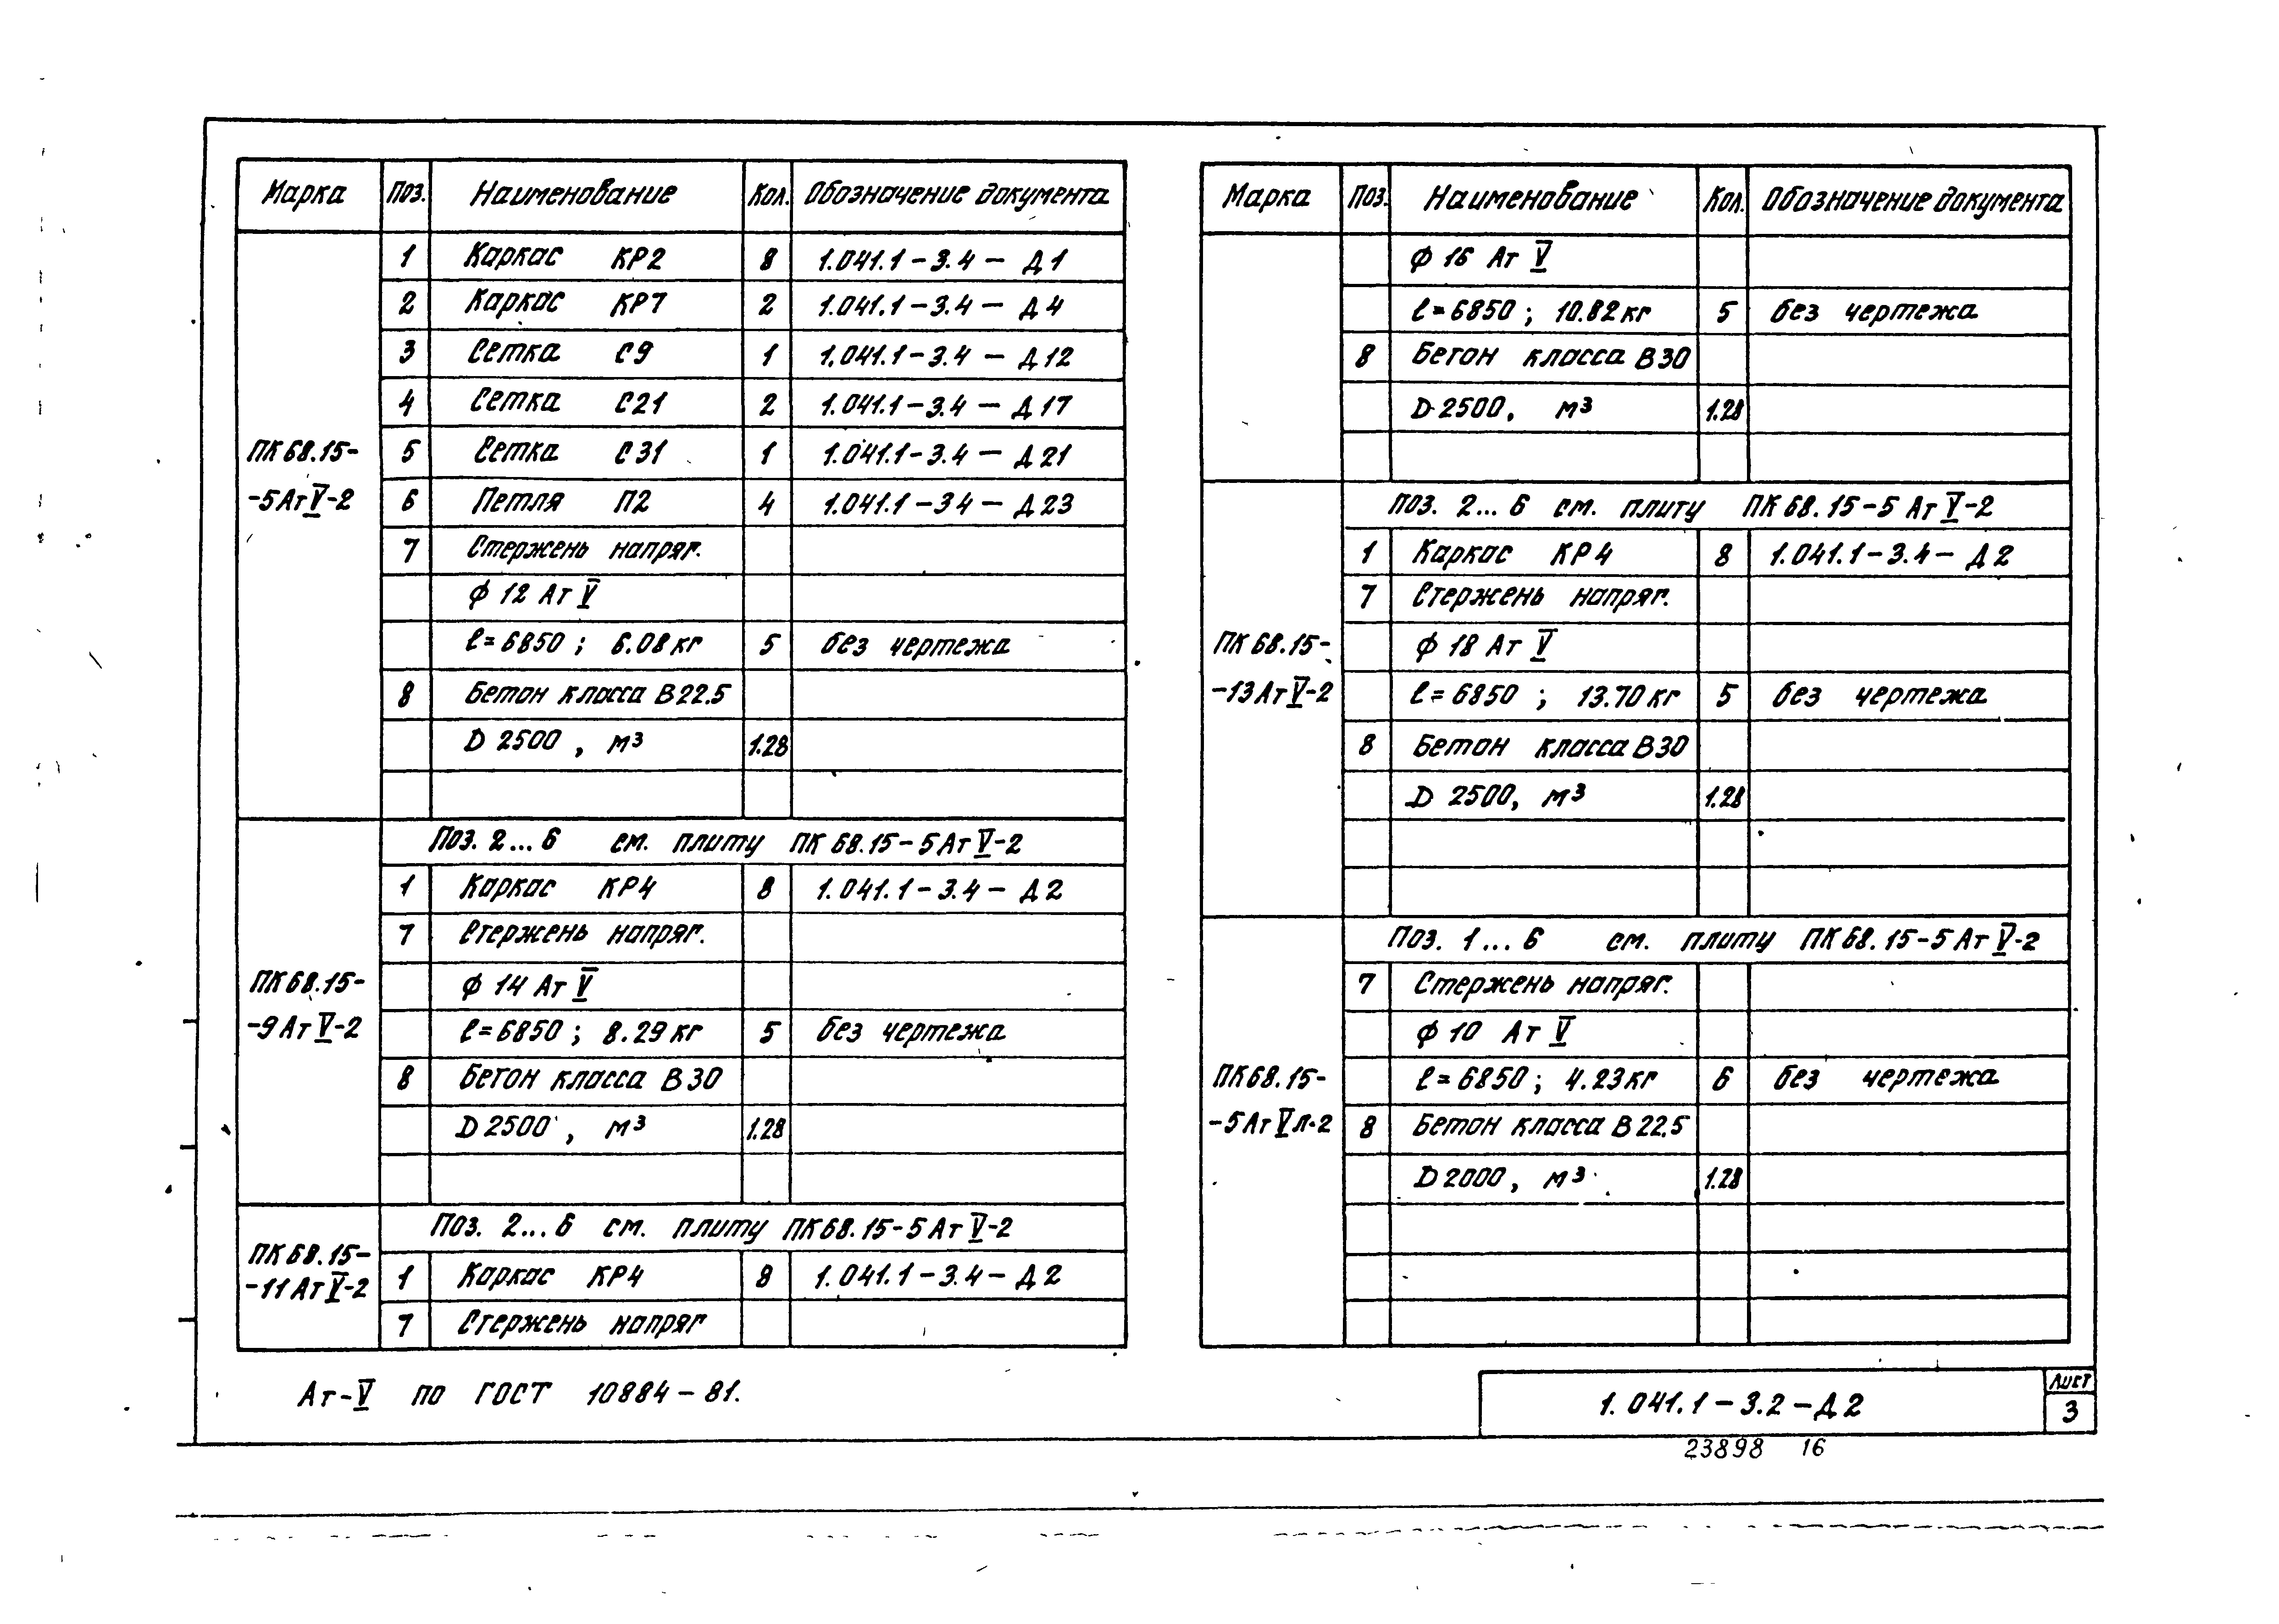 Марка Поз. Наименование Кол. Обозначение документа
ПК 68.15-
-5 Ат V-2
1 Каркас КР2 8 1.041.1-3.4 - Д1
2 Каркас КР7 2 1.041.1-3.4 - Д4
3 Сетка С9 1 1.041.1-3.4 - Д12
4 Сетка С21 2 1.041.1-3.4 - Д17
5 Сетка С31 1 1.041.1-3.4 - Д21
6 Петля П2 4 1.041.1-34 - Д23
7 Стержень напряг.
ф 12 Ат V
ℓ=6850 ; 6.08 кг 5 без чертежа
8 Бетон класса В22.5
D 2500 , м³ 1.28
ПК 68.15-
-9 Ат V-2
Поз. 2...6 см. плиту ПК 68.15-5 Ат V-2
1 Каркас КР4 8 1.041.1-3.4 - Д2
7 Стержень напряг.
ф 14 Ат V
ℓ=6850 ; 8.29 кг 5 без чертежа
8 Бетон класса В30
D 2500 , м³ 1.28
ПК 68.15-
-11 Ат V-2
Поз. 2...6 см. плиту ПК 68.15-5 Ат V-2
1 Каркас КР4 8 1.041.1-3.4 - Д2
7 Стержень напряг
Марка Поз. Наименование Кол. Обозначение документа
ф 16 Ат V
ℓ=6850 ; 10.82 кг 5 без чертежа
8 Бетон класса В30
D-2500, м³ 1.28
ПК 68.15-
-13 Ат V-2
поз. 2...6 см. плиту ПК 68.15-5 Ат V-2
1 Каркас КР4 8 1.041.1-3.4 - Д2
7 Стержень напряг.
ф 18 Ат V
ℓ=6850 ; 13.70 кг 5 без чертежа
8 Бетон класса В30
D 2500, м³ 1.28
ПК 68.15-
-5 Ат V Л-2
Поз. 1...6 см. плиту ПК 68.15-5 Ат V-2
7 Стержень напряг.
ф 10 Ат V
ℓ=6850 ; 4.23 кг 6 без чертежа
8 Бетон класса В22.5
D 2000 , м³ 1.28
Ат-V по ГОСТ 10884-81.
1.041.1-3.2-Д2
Лист
3
23898 16